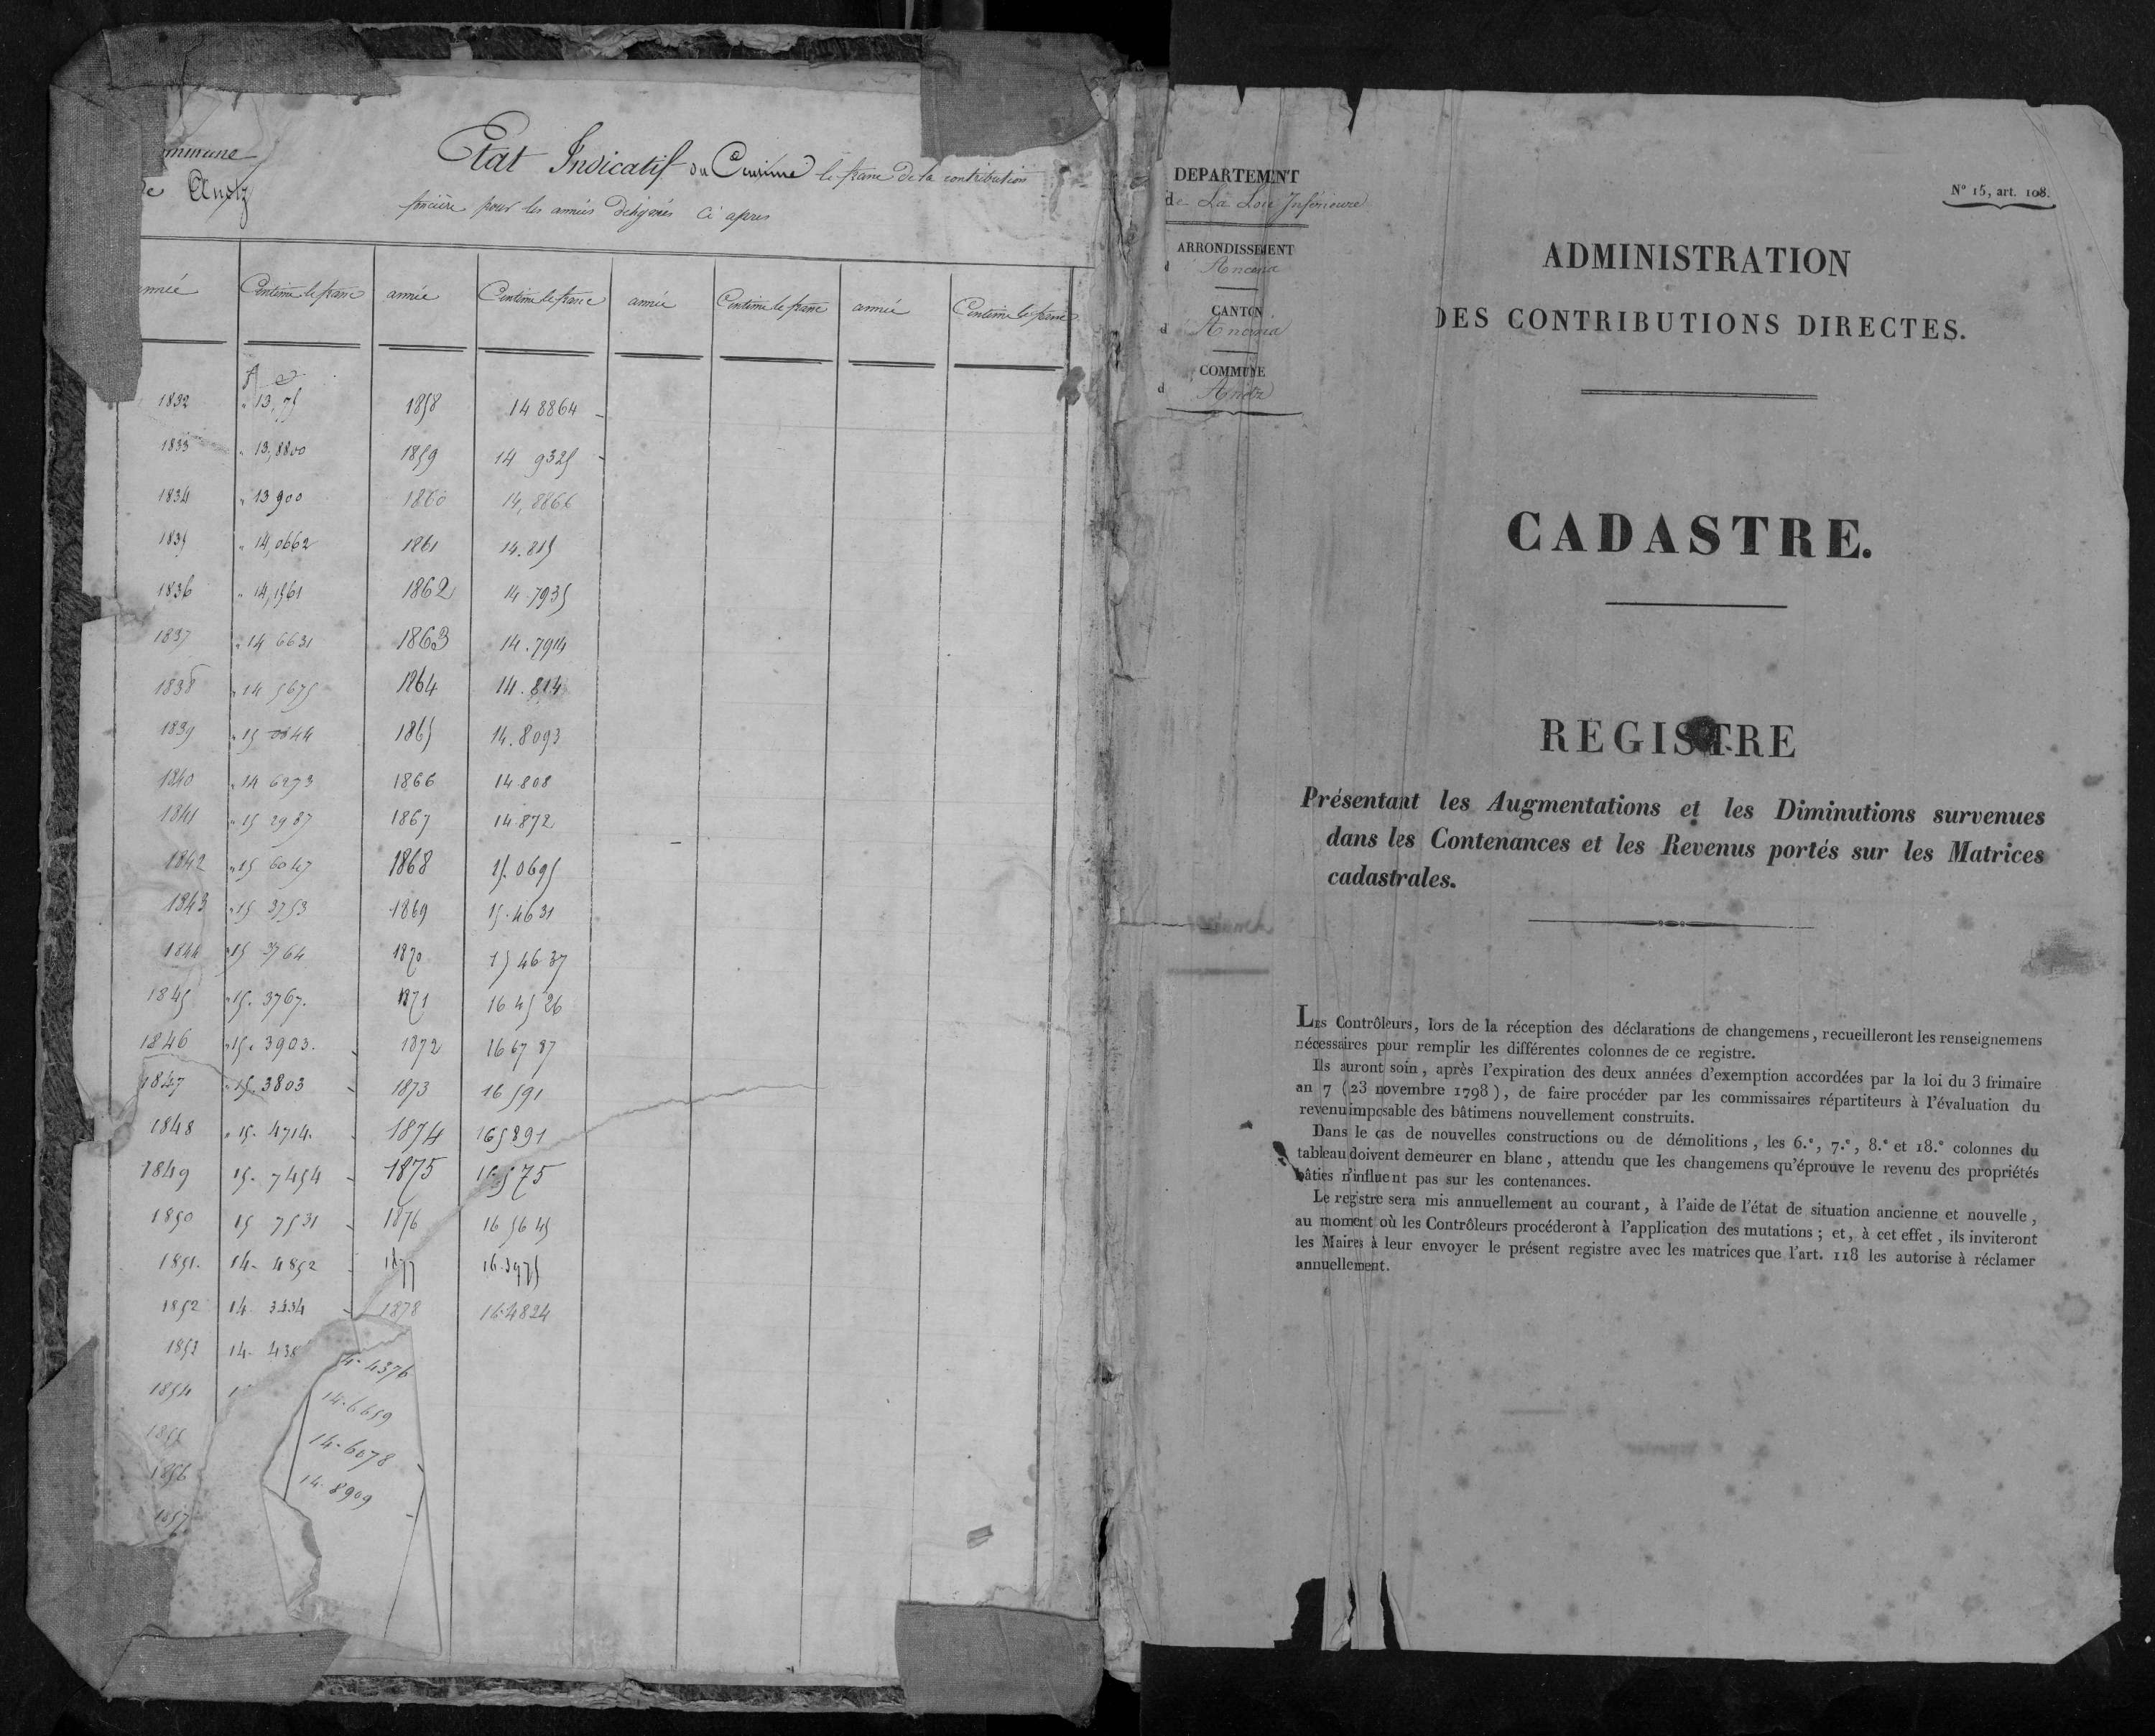 Commune
de Anetz
Etat Indicatif du Centime le franc de la contribution
foncière pour les années désignées Ci après
année Centime le franc année Centime le franc année Centime le franc année Centime le franc
1832 " 13,75 1858 14 8864
1833 " 13,8800 1859 14 9325
1834 " 13 900 1860 14,8866
1835 " 14,0662 1861 14.815
1836 " 14,1561 1862 14.7935
1837 " 14 6631 1863 14.7914
1838 " 14 5675 1864 14.814
1839 " 15 0844 1865 14.8093
1840 " 14 6273 1866 14.808
1841 " 15 2987 1867 14.872
1842 " 15 6047 1868 15.0695
1843 " 15 3753 1869 15.4631
1844 " 15 3764 1870 15 46 37
1845 " 15.3767. 1871 16 45 26
1846 " 15.3903. 1872 16 67 87
1847 " 15.3803 1873 16 591
1848 " 15.4714. 1874 165891
1849 15.7454 1875 16575
1850 15 7531 1876 16 5645
1851. 14-4852 1877 16.3975
1852 14 3334 1878 16.4824
1853 14-438
1854 14-4376
1855 14-6659
1856 14-6078
1857 14-8909
DEPARTEMENT
de La Loire Inférieure
ARRONDISSEMENT
d Ancenis
CANTON
d Ancenis
COMMUNE
d Anetz
N° 15, art. 108.
ADMINISTRATION
DES CONTRIBUTIONS DIRECTES.
CADASTRE.
REGISTRE
Présentant les Augmentations et les Diminutions survenues
dans les Contenances et les Revenus portés sur les Matrices
cadastrales.
Les Contrôleurs, lors de la réception des déclarations de changemens, recueilleront les renseignemens
nécessaires pour remplir les différentes colonnes de ce registre.
Ils auront soin, après l'expiration des deux années d'exemption accordées par la loi du 3 frimaire
an 7 (23 novembre 1798), de faire procéder par les commissaires répartiteurs à l'évaluation du
revenu imposable des bâtimens nouvellement construits.
Dans le cas de nouvelles constructions ou de démolitions, les 6.e, 7.e, 8.e et 18.e colonnes du
tableau doivent demeurer en blanc, attendu que les changemens qu'éprouve le revenu des propriétés
bâties n'influent pas sur les contenances.
Le registre sera mis annuellement au courant, à l'aide de l'état de situation ancienne et nouvelle,
au moment où les Contrôleurs procéderont à l'application des mutations; et, à cet effet, ils inviteront
les Maires à leur envoyer le présent registre avec les matrices que l'art. 118 les autorise à réclamer
annuellement.